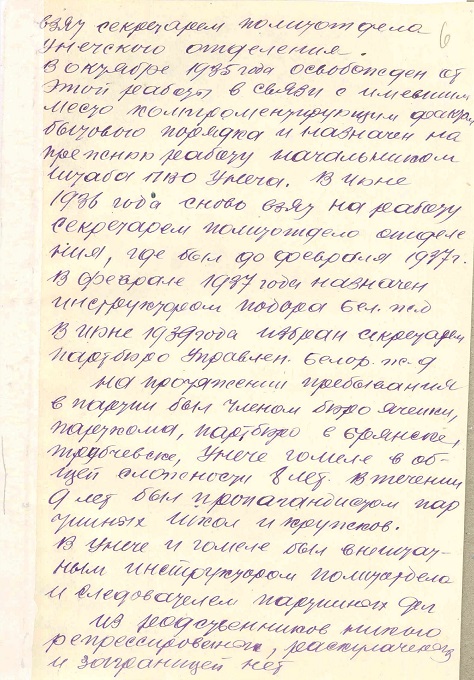 6
взят секретарем политотдела
Унечского отделения.
В октябре 1935 года освобожден от
этой работы в связи с имевшим
место компроментирующим фактом
бытового порядка и назначен на
прежнюю работу начальником
штаба ПВО Унеча. В июне
1936 года снова взят на работу
секретарем политотдела отделе
ния, где был до февраля 1937 г.
В феврале 1937 года назначен
инструктором подора Бел. жд
В июне 1939 года избран секретарем
партбюро Управлен. Белор. ж-д
На протяжении пребывания
в партии был членом бюро ячейки,
парткома, партбюро в Брянске,
Трубчевске, Унече Гомеле в об-
щей сложности 8 лет. В течении
9 лет был пропагандистом пар
тийных школ и кружков.
В Унече и Гомеле был внештат-
ным инструктором политотдела
и следователем партийных дел
Из родственников никого
репрессированых, раскулаченых
и заграницей нет